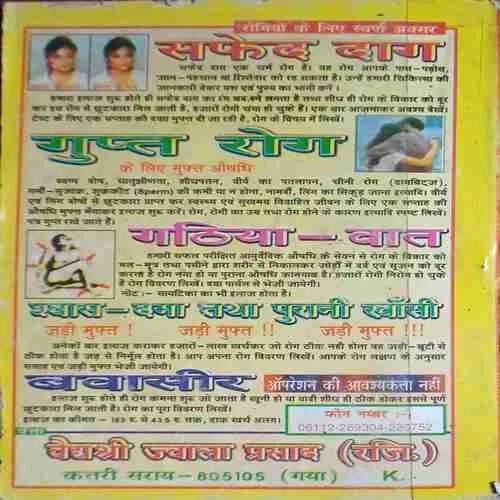 रोगियों के लिए स्वर्ण अवसर
सफेद दाग
सफेद दाग एक चर्म रोग है। यह रोग आपके पास-पड़ोस,
जान-पहचान या रिश्तेदार को रह सकता है। उन्हें हमारी चिकित्सा की
जानकारी देकर यश एवं पुण्य का भागी बनें।
हमारा इलाज शुरू होते ही सफेद दाग का रंग बदलने लगता है तथा शीघ्र ही रोग के विकार को दूर
कर इस रोग से छुटकारा मिल जाता है, हजारों रोगी चंगा हो चुके हैं। एक बार आजमाकर अवश्य देखें।
टेस्ट के लिए एक सप्ताह की दवा मुफ्त दी जा रही है, रोग के विषय में लिखें।
गुप्त रोग
के लिए मुफ्त औषधि
स्वप्न दोष, धातुक्षीणता, शीघ्रपतन, वीर्य का पतलापन, चीनी रोग (डायबिट्ज),
गर्मी-सुजाक, शुक्रकीट (Sperm) की कमी या न होना, नामर्दी, लिंग का सिकुड़ जाना इत्यादि। वीर्य
एवं लिंग दोषों से छुटकारा प्राप्त कर स्वस्थ्य एवं सुखमय विवाहित जीवन के लिए एक सप्ताह की
औषधि मुफ्त मँगवाकर इलाज शुरू करें। रोग, रोगी का उम्र तथा रोग होने के कारण इत्यादि स्पष्ट लिखें।
पत्र गुप्त रखे जाते हैं।
गठिया-वात
हमारी सफल परीक्षित आयुर्वेदिक औषधि के सेवन से रोग के विकार को
मल-मूत्र तथा पसीने द्वारा शरीर से निकालकर जोड़ों में दर्द एवं सूजन को दूर
करता है रोग नया हो या पुराना औषधि कामयाब है। हजारों रोगी निरोग हो चुके
हैं रोग विवरण लिखें। दवा पार्सल से भेजी जायेगी।
नोट :- सायटिका का भी इलाज होता है।
श्वास-दमा तथा पुरानी खाँसी
जड़ी मुफ्त ! जड़ी मुफ्त !! जड़ी मुफ्त !!!
अनेकों बार इलाज कराकर हजारों-लाख खर्चकर जो रोग ठीक नहीं होता वह जड़ी-बूटी से
ठीक होता है जड़ से निर्मूल होता है। आप अपना रोग विवरण लिखें। आपके रोग लक्षण के अनुसार
दवाई एवं जड़ी मुफ्त भेजी जायेगी।
बवासीर ऑपरेशन की आवश्यकता नहीं
इलाज शुरू होते ही रोग कमना शुरू हो जाता है खूनी हो या बादी शीघ्र ही ठीक होकर इससे पूर्ण
छुटकारा मिल जाता है। रोग का पूरा विवरण लिखें।
इलाज का कीमत-
फोन नम्बर :-
06112-289304-280752
वैद्यश्री ज्वाला प्रसाद (रजि.)
कतरी सराय-805105 (गया) K.